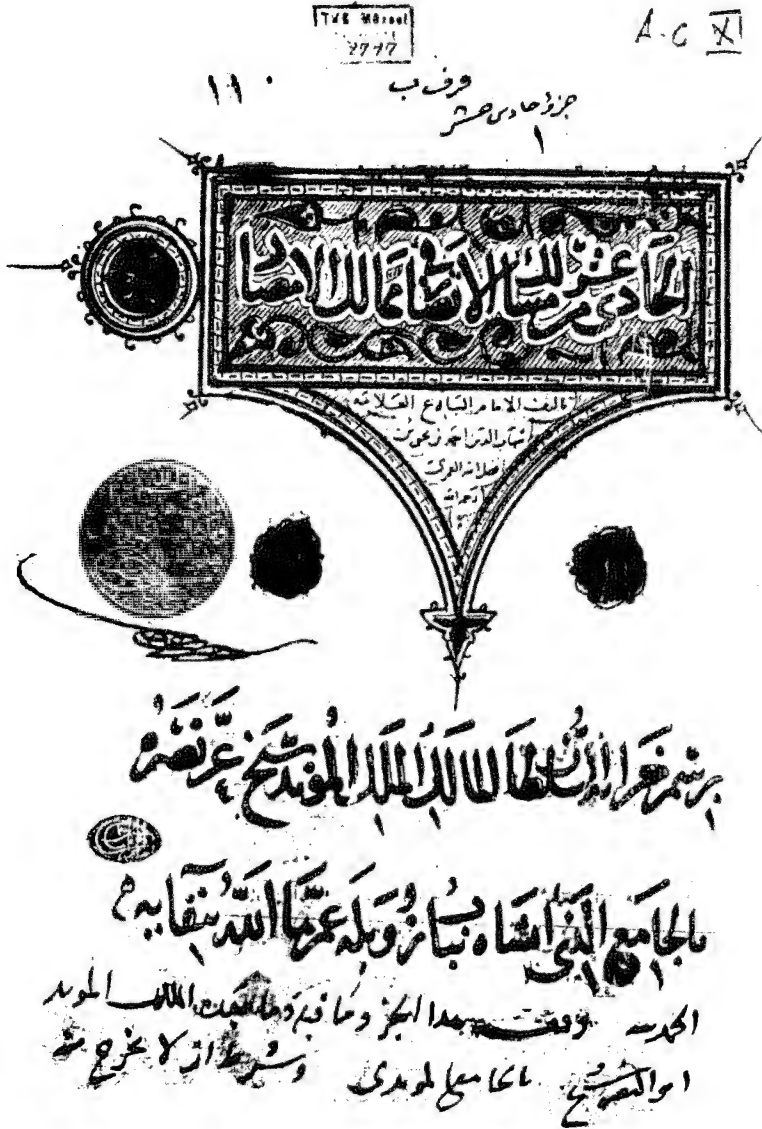 TKS Müzesi
2797
A.C XI
١١٠
جزؤ حادى عشر
١
الحادى عشر من مسالك الابصار فى ممالك الامصار
تاليف الامام البارع العلامة
شهاب الدين احمد بن يحيى بن
فضل الله العمرى
رحمه الله
برسم خزانة السلطان المالك الملك المؤيد شيخ عز نصره
بالجامع الذى انشاه بباب زويلة عمرها الله ببقايه
الحمد لله وقف هذا الجزو وما قبله وما بعده الملك المويد
ابو النصر شيخ بالجامع المويدى وشرط ان لا يخرج منه